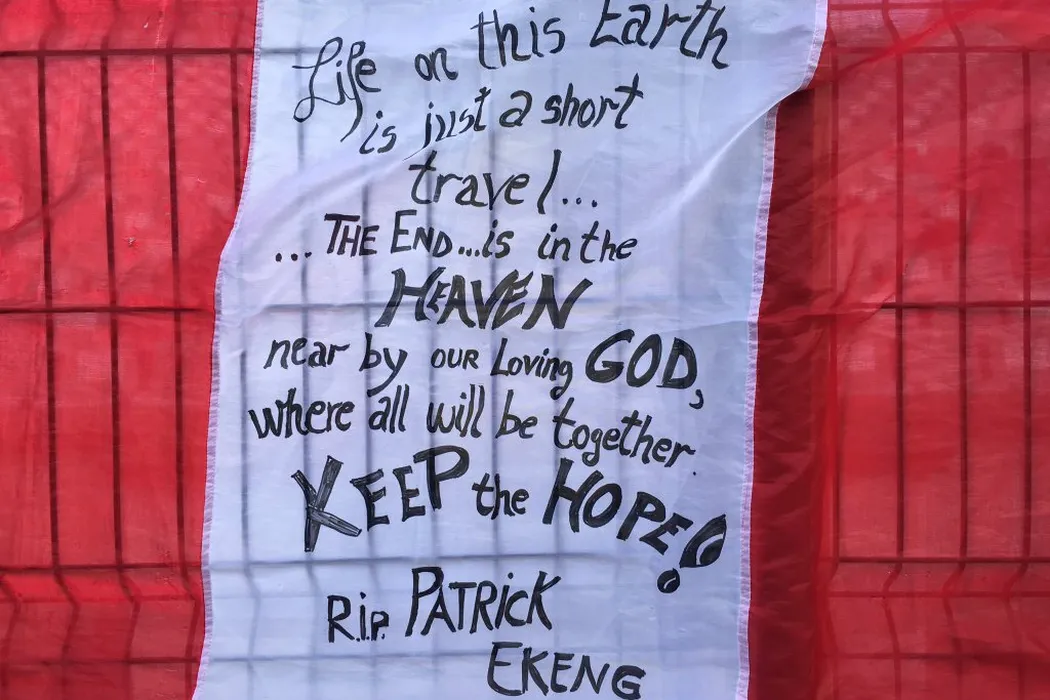 Life on this Earth
is just a short
travel...
...THE END...is in the
HEAVEN
near by OUR Loving GOD,
where all will be together.
KEEP the HOPE!
R.i.P. PATRiCK
EKENG